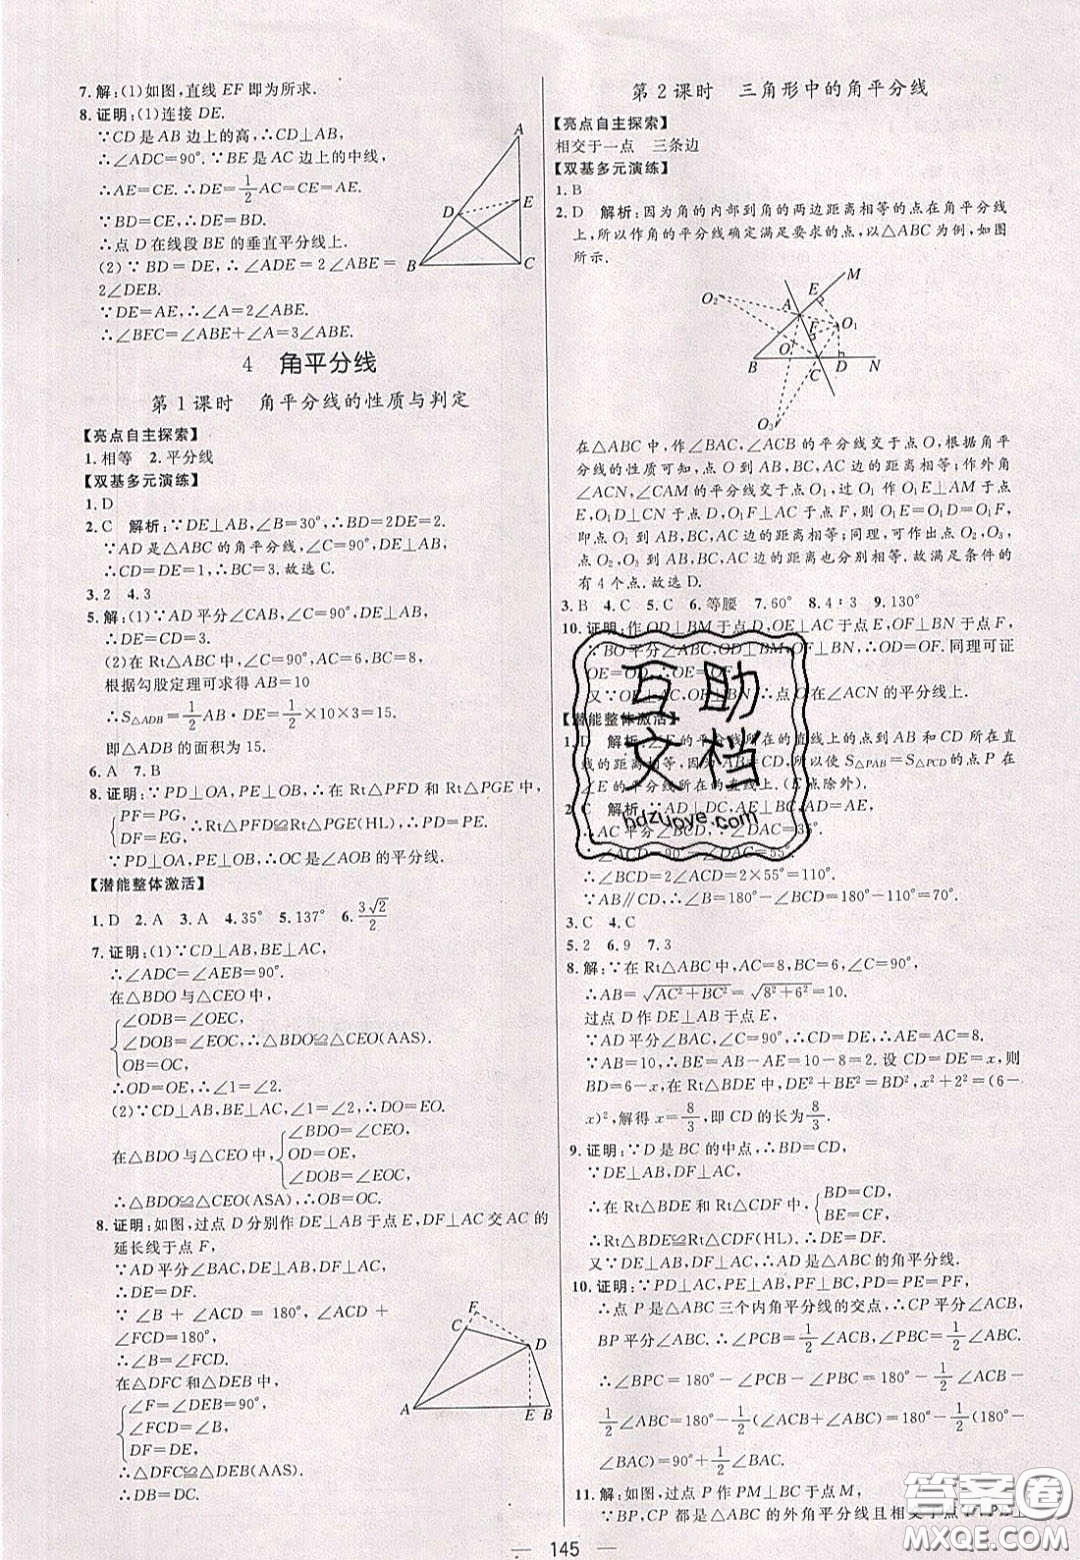 7.解:(1)如图,直线EF即为所求.
8.证明:(1)连接DE.
∵CD是AB边上的高,∴CD⊥AB,
∴∠ADC=90°.∵BE是AC边上的中线,
∴AE=CE.∴DE=1/2AC=CE.
∵BD=CE,∴DE=DB.
∴点D在线段BE的垂直平分线上.
(2)∵BD=DE,∴∠ADE=2∠ABE=
2∠DEB.
∵DE=AE,∴∠A=2∠ABE.
∴∠BEC=∠ABE+∠A=3∠ABE.
A
D
E
B
C
4 角平分线
第1课时 角平分线的性质与判定
【亮点自主探索】
1.相等 2.平分线
【双基多元演练】
1.D
2.C 解析:∵DE⊥AB,∠B=30°,∴BD=2DE=2.
∵AD是△ABC的角平分线,∠C=90°,
∴CD=DE=1,∴BC=3.故选C.
3.2 4.3
5.解:(1)∵AD平分∠CAB,∠C=90°,DE⊥AB,
∴DE=CD=3.
(2)在Rt△ABC中,∠C=90°,AC=6,BC=8,
根据勾股定理可求得AB=10
∴S△ADB=1/2AB·DE=1/2×10×3=15.
即△ADB的面积为15.
6.A 7.B
8.证明:∵PD⊥OA,PE⊥OB,∴在Rt△PFD和Rt△PGE中,
{PF=PG,
DF=EG,∴Rt△PFD≌Rt△PGE(HL),∴PD=PE.
∵PD⊥OA,PE⊥OB,∴OC是∠AOB的平分线.
【潜能整体激活】
1.D 2.A 3.A 4.35° 5.137° 6.3√2/2
7.证明:(1)∵CD⊥AB,BE⊥AC,
∴∠ADC=∠AEB=90°.
在△BDO与△CEO中,
{∠ODB=∠OEC,
∠DOB=∠EOC,∴△BDO≌△CEO(AAS).
OB=OC.
∴OD=OE,∴∠1=∠2.
(2)∵CD⊥AB,BE⊥AC,∠1=∠2,∴DO=EO.
在△BDO与△CEO中,{∠BDO=∠CEO,
OD=OE,
∠DOB=∠EOC,
∴△BDO≌△CEO(ASA),∴OB=OC.
8.证明:如图,过点D分别作DE⊥AB于点E,DF⊥AC交AC的
延长线于点F,
∵AD平分∠BAC,DE⊥AB,DF⊥AC,
∴DE=DF.
∵∠B+∠ACD=180°,∠ACD+
∠FCD=180°,
∴∠B=∠FCD.
在△DFC和△DEB中,
{∠F=∠DEB=90°,
∠FCD=∠B,
DF=DE,
∴△DFC≌△DEB(AAS).
∴DB=DC.
F
C
D
A
E
B
第2课时 三角形中的角平分线
【亮点自主探索】
相交于一点 三条边
【双基多元演练】
1.B
2.D 解析:因为角的内部到角的两边距离相等的点在角平分线
上,所以作角的平分线确定满足要求的点,以△ABC为例,如图
所示.
M
E
A
O₂
F
O₁
O
B
C
D
N
O₃
在△ABC中,作∠BAC,∠ACB的平分线交于点O,根据角平
分线的性质可知,点O到AB,BC,AC的距离相等;作外角
∠ACN,∠CAM的平分线交于点O₁,过O₁作O₁E⊥AM于点
E,O₁D⊥CN于点D,O₁F⊥AC于点F,则O₁E=O₁D=O₁F,
即点O₁到AB,BC,AC边的距离相等;同理,可作出点O₂,
O₃,点O₂,O₃到AB,BC,AC边的距离也分别相等.故满足条件的
有4个点.故选D.
3.B 4.C 5.C 6.等腰 7.60° 8.4∶3 9.130°
10.证明:作OD⊥BM于点D,OE⊥AC于点E,OF⊥BN于点F,
∵BO平分∠ABC,OD⊥BM,OF⊥BN,∴OD=OF.同理可证
OE=OD,∴OE=OF.
又∵OE⊥AC,OF⊥BN,∴点O在∠ACN的平分线上.
【潜能整体激活】
1.D 解析:∠E的平分线所在的直线上的点到AB和CD所在直
线的距离相等,因为AB=CD,所以使S△PAB=S△PCD的点P在
∠E的平分线所在的直线上.(E点除外).
2.C 解析:∵AD⊥DC,AE⊥BC,AD=AE,
∴AC平分∠BCD,∠DAC=35°.
∴∠ACD=90°-∠DAC=55°.
∴∠BCD=2∠ACD=2×55°=110°.
∵AB∥CD,∴∠B=180°-∠BCD=180°-110°=70°.
3.C 4.C
5.2 6.9 7.3
8.解:∵在Rt△ABC中,AC=8,BC=6,∠C=90°,
∴AB=√(AC²+BC²)=√(8²+6²)=10.
过点D作DE⊥AB于点E,
∵AD平分∠BAC,∠C=90°,∴CD=DE,∴AE=AC=8.
∵AB=10,∴BE=AB-AE=10-8=2.设CD=DE=x,则
BD=6-x,在Rt△BDE中,DE²+BE²=BD²,x²+2²=(6-
x)²,解得x=8/3,即CD的长为8/3.
9.证明:∵D是BC的中点,∴BD=CD.
∵DE⊥AB,DF⊥AC,
∴在Rt△BDE和Rt△CDF中,{BD=CD,
BE=CF,
∴Rt△BDE≌Rt△CDF(HL).∴DE=DF.
又∵DE⊥AB,DF⊥AC,∴AD是△ABC的角平分线.
10.证明:∵PD⊥AC,PE⊥AB,PF⊥BC,PD=PE=PF,
∴点P是△ABC三个内角平分线的交点,∴CP平分∠ACB,
BP平分∠ABC.∴∠PCB=1/2∠ACB,∠PBC=1/2∠ABC.
∴∠BPC=180°-∠PCB-∠PBC=180°-1/2∠ACB-
1/2∠ABC=180°-1/2(∠ACB+∠ABC)=180°-1/2(180°-
∠BAC)=90°+1/2∠BAC.
11.解:如图,过点P作PM⊥BC于点M,
∵BP,CP都是△ABC的外角平分线且相交于点P,PD⊥
互助
文档
hdzuoye.com
答案圈
MXQE.COM
145